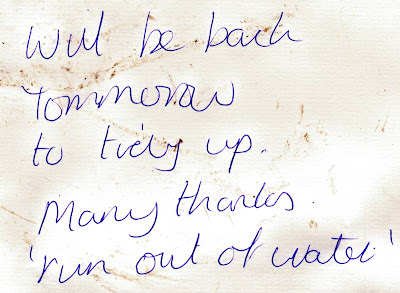 Will be back
Tommorow
to tidy up.
Many thanks.
'run out of water'